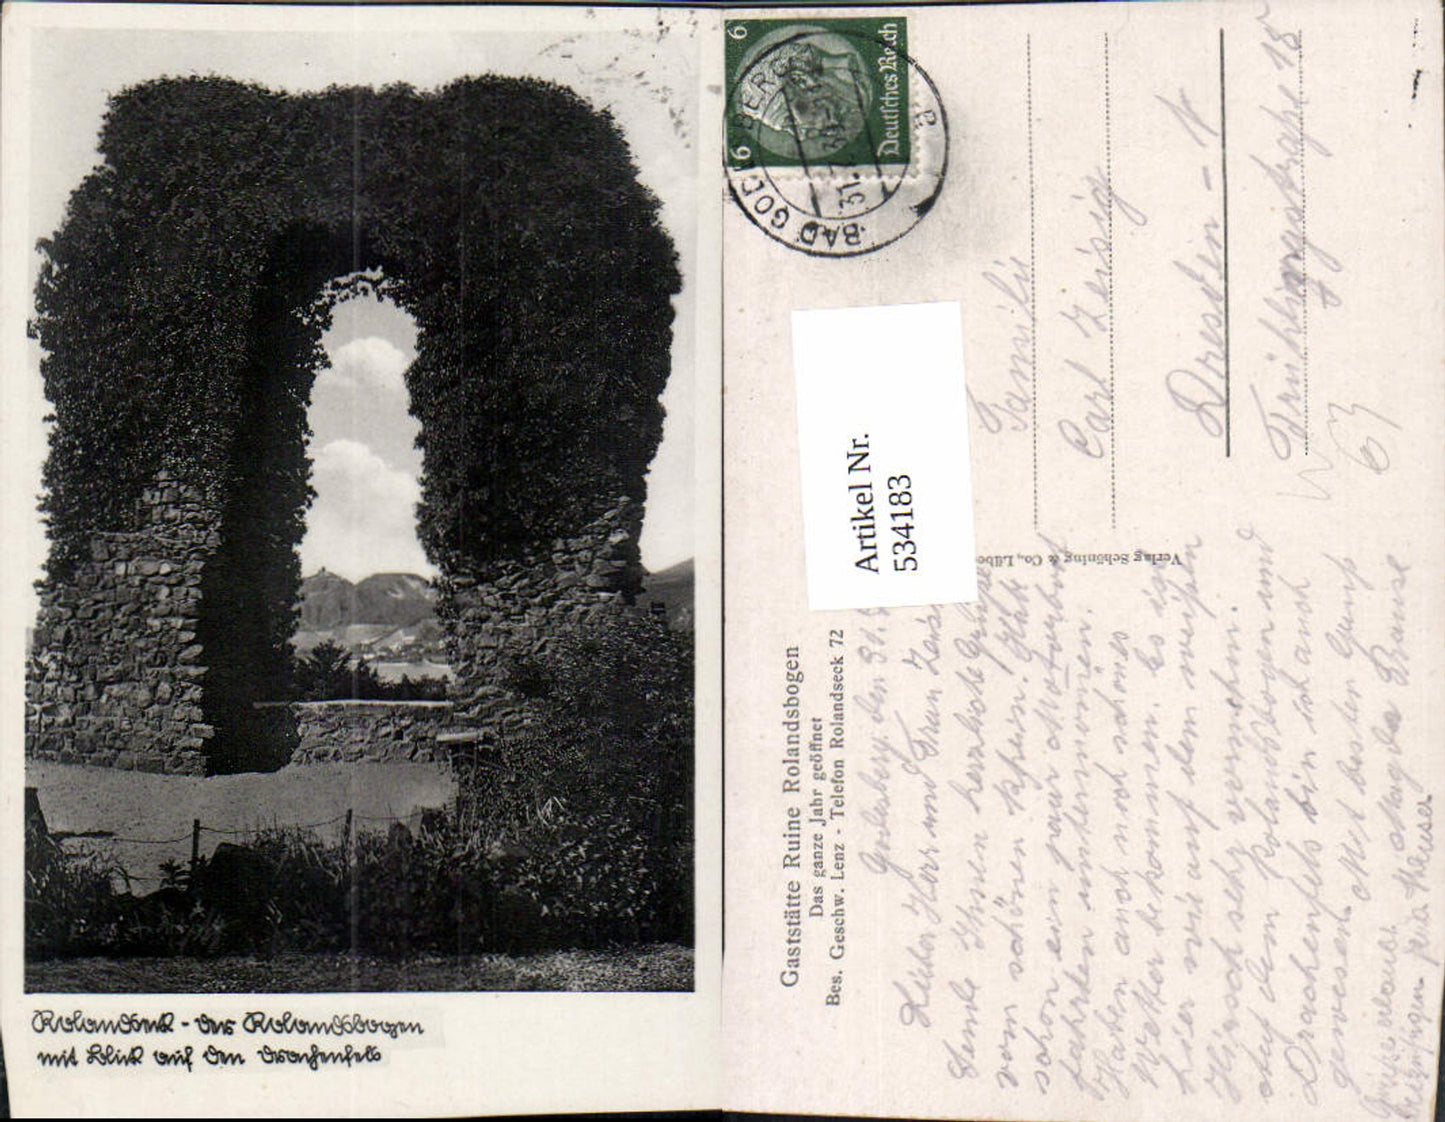 Rolandseck - der Rolandsbogen
mit Blick auf den Drachenfels
6 Deutsches Reich 6
BAD GODESBERG
31.
a
Artikel Nr.
534183
Gaststätte Ruine Rolandsbogen
Das ganze Jahr geöffnet
Bes. Geschw. Lenz - Telefon Rolandseck 72
Verlag Schöning & Co., Lübe
Familie
Carl Zeisig
Dresden - N
Godesberg, den 31.
Lieber Herr und Frau Zeis
Sende Ihnen herzliche Grüße
vom schönen Rhein. Hab
schon ein paar Motorboot
fahrten unternommen.
Haben auch noch schönes
Wetter bekommen. Es ist
hier wie auf dem
vornehm.
Auf der Rolandsbogen und
Drachenfels bin ich auch
gewesen. Mit besten Gruß
Magda